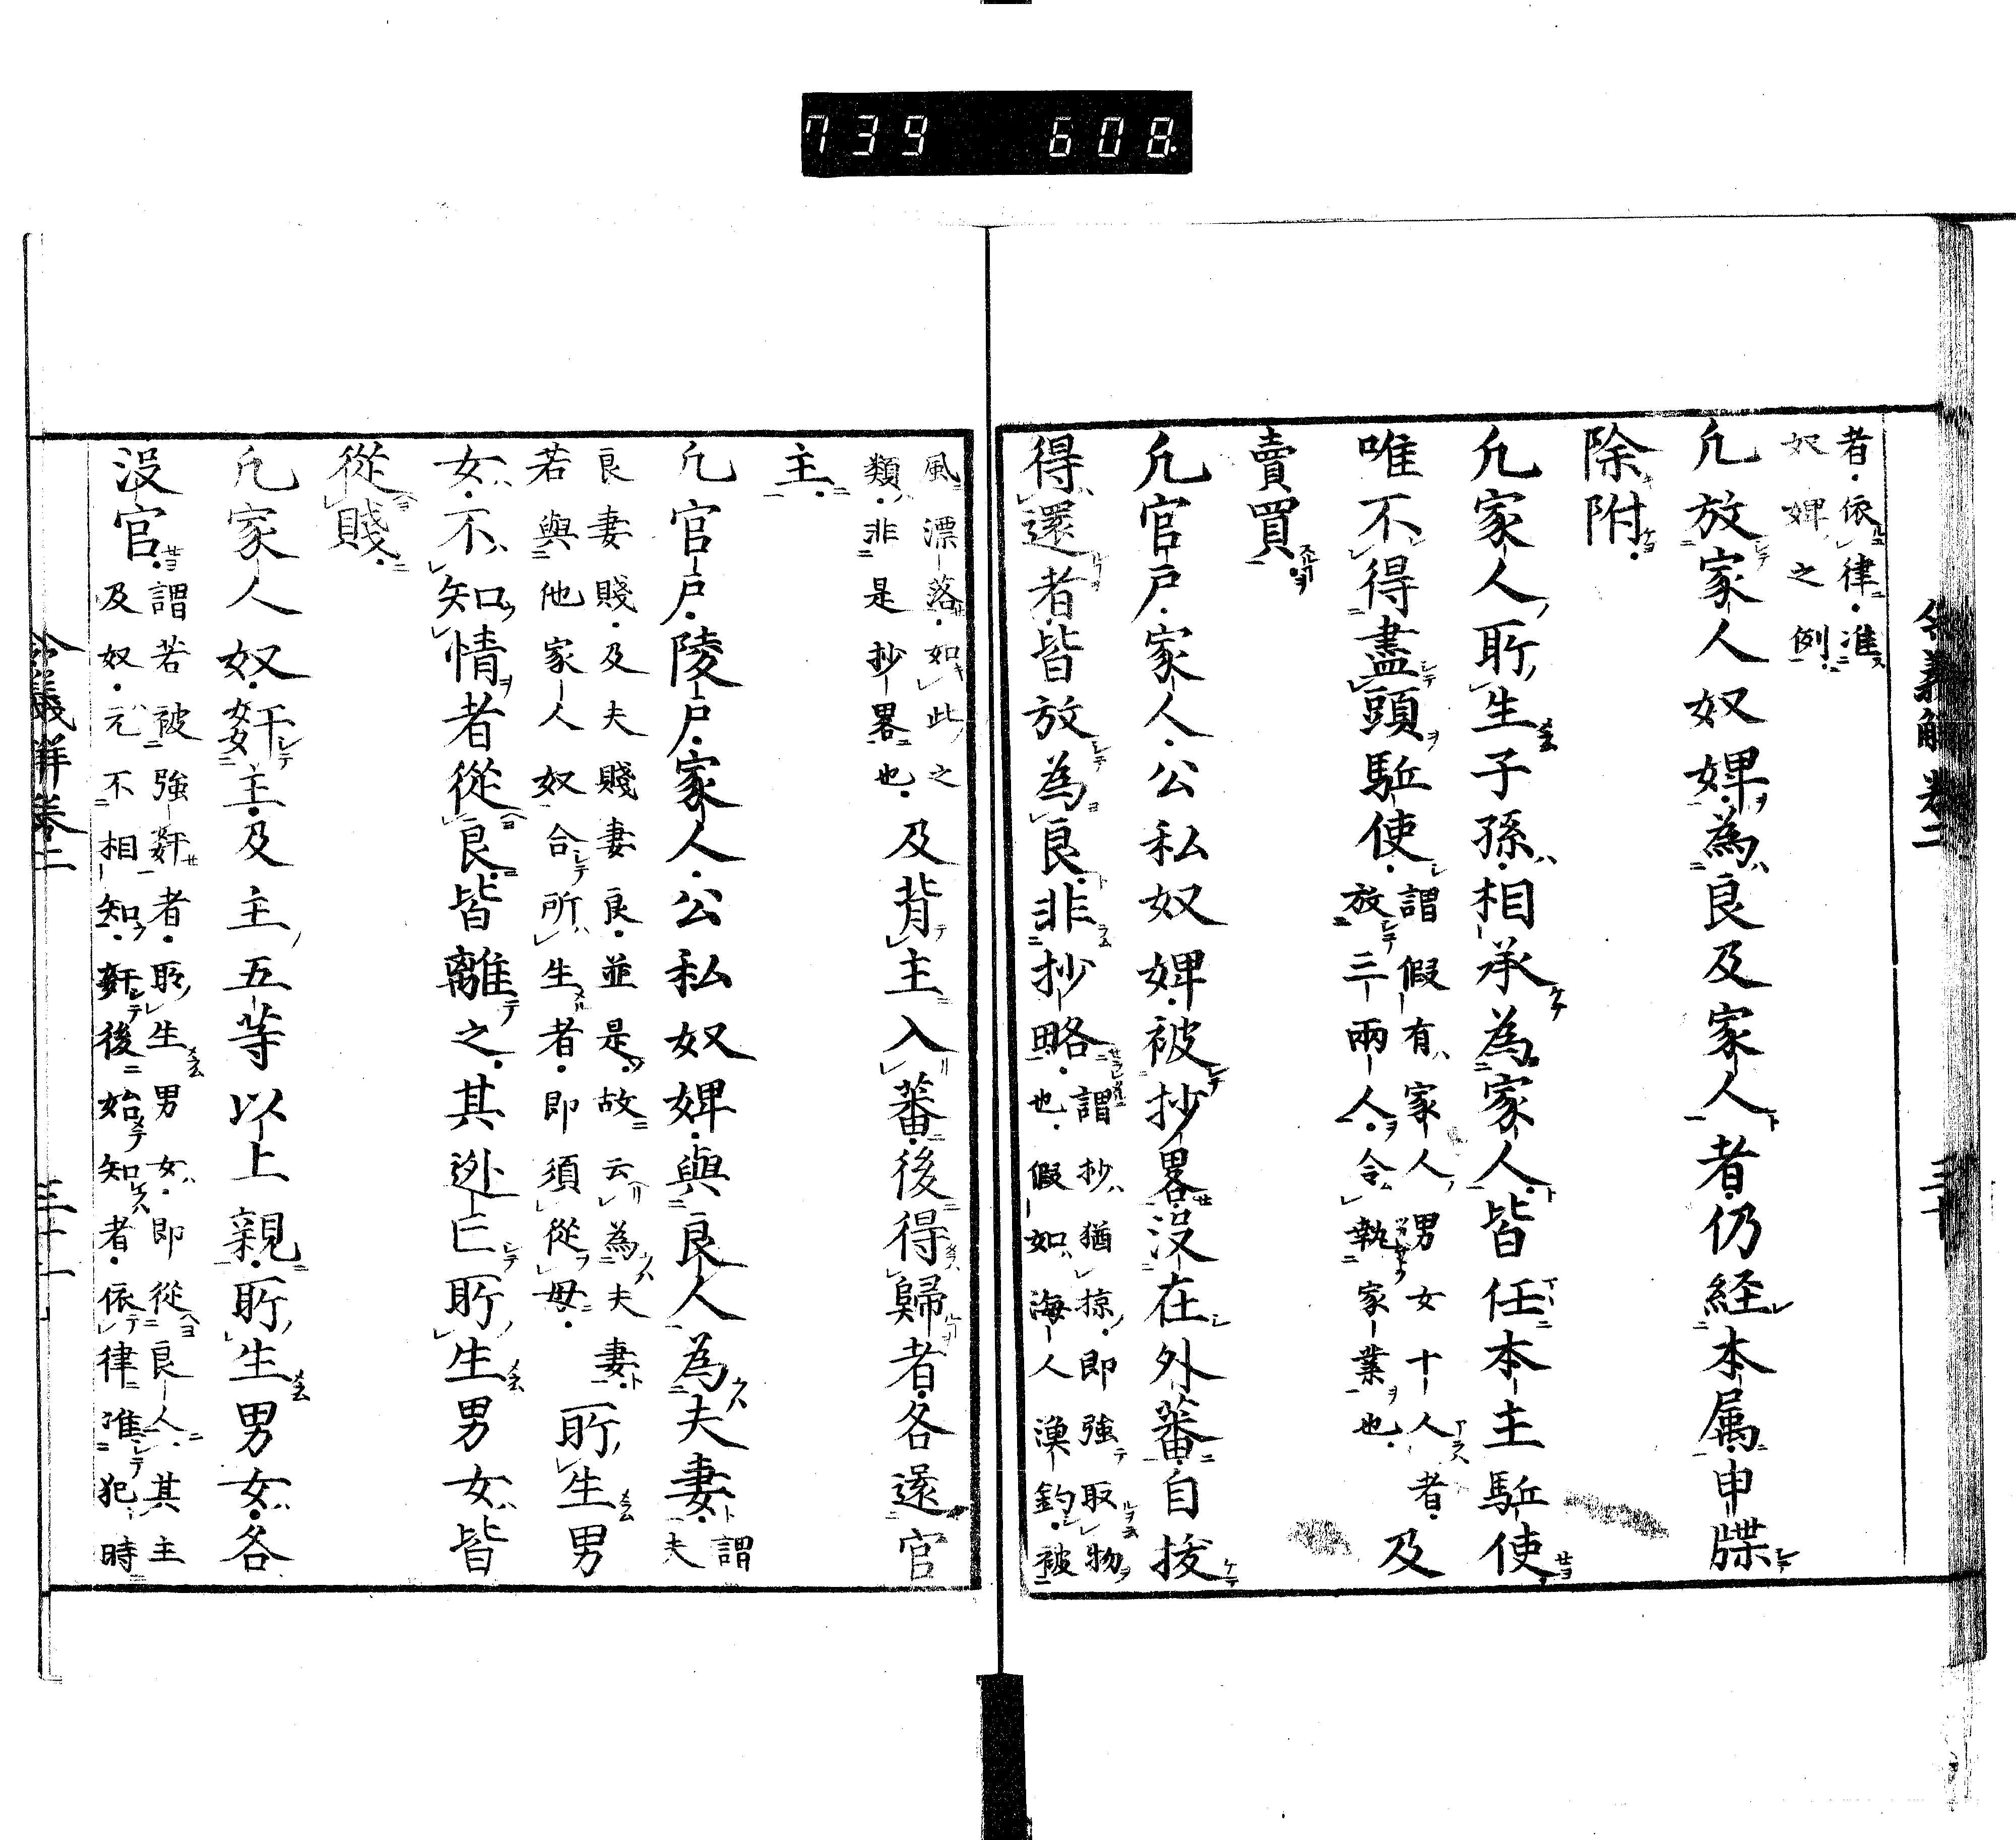 739 608.
令義解卷二
三十
者。依律。准
奴婢之例。
凢放家人奴婢。為良及家人者。仍経本属。申牒
除附。
凢家人所生子孫。相承為家人。皆任本主駈使。
唯不得盡頭駈使。謂假有家人男女十人者。
放三兩人。令執家業也。及
賣買。
凢官戸。家人。公私奴婢。被抄畧。没在外蕃。自拔
得還者。皆放為良。非抄略。謂抄猶掠。即強取物
也。假如海人漁釣。被
風漂落。如此之
類。非是抄畧也。及背主入蕃。後得歸者。各還官
主。
凢官戸。陵戸。家人。公私奴婢。與良人為夫妻。謂
夫
良妻賤。及夫賤妻良。並是。故云為夫妻。所生男
若與他家人奴合所生者。即須從母。
女。不知情者從良。皆離之。其逃亡所生男女。皆
從賤。
凢家人奴。姧主。及主五等以上親。所生男女。各
没官。謂若被強姧者。所生男女。即從良人。其主
及奴。元不相知。姧後始知者。依律准犯時
令義解卷二
三十一